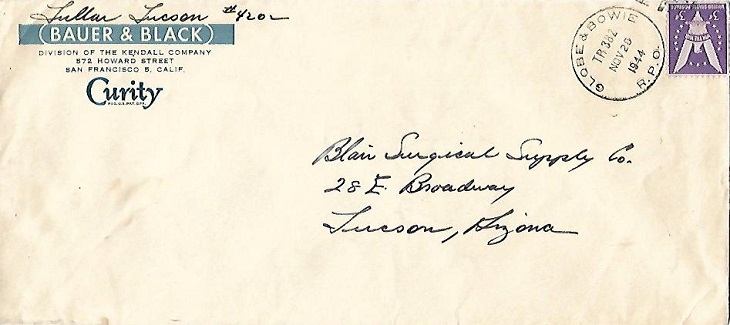 Tullar Tucson #4202
BAUER & BLACK
DIVISION OF THE KENDALL COMPANY
572 HOWARD STREET
SAN FRANCISCO 5, CALIF.
Curity
REG. U.S. PAT. OFF.
GLOBE & BOWIE
TR 382
NOV 28
1944
R.P.O.
3¢ 3¢
Blair Surgical Supply Co.
28 E. Broadway
Tucson, Arizona